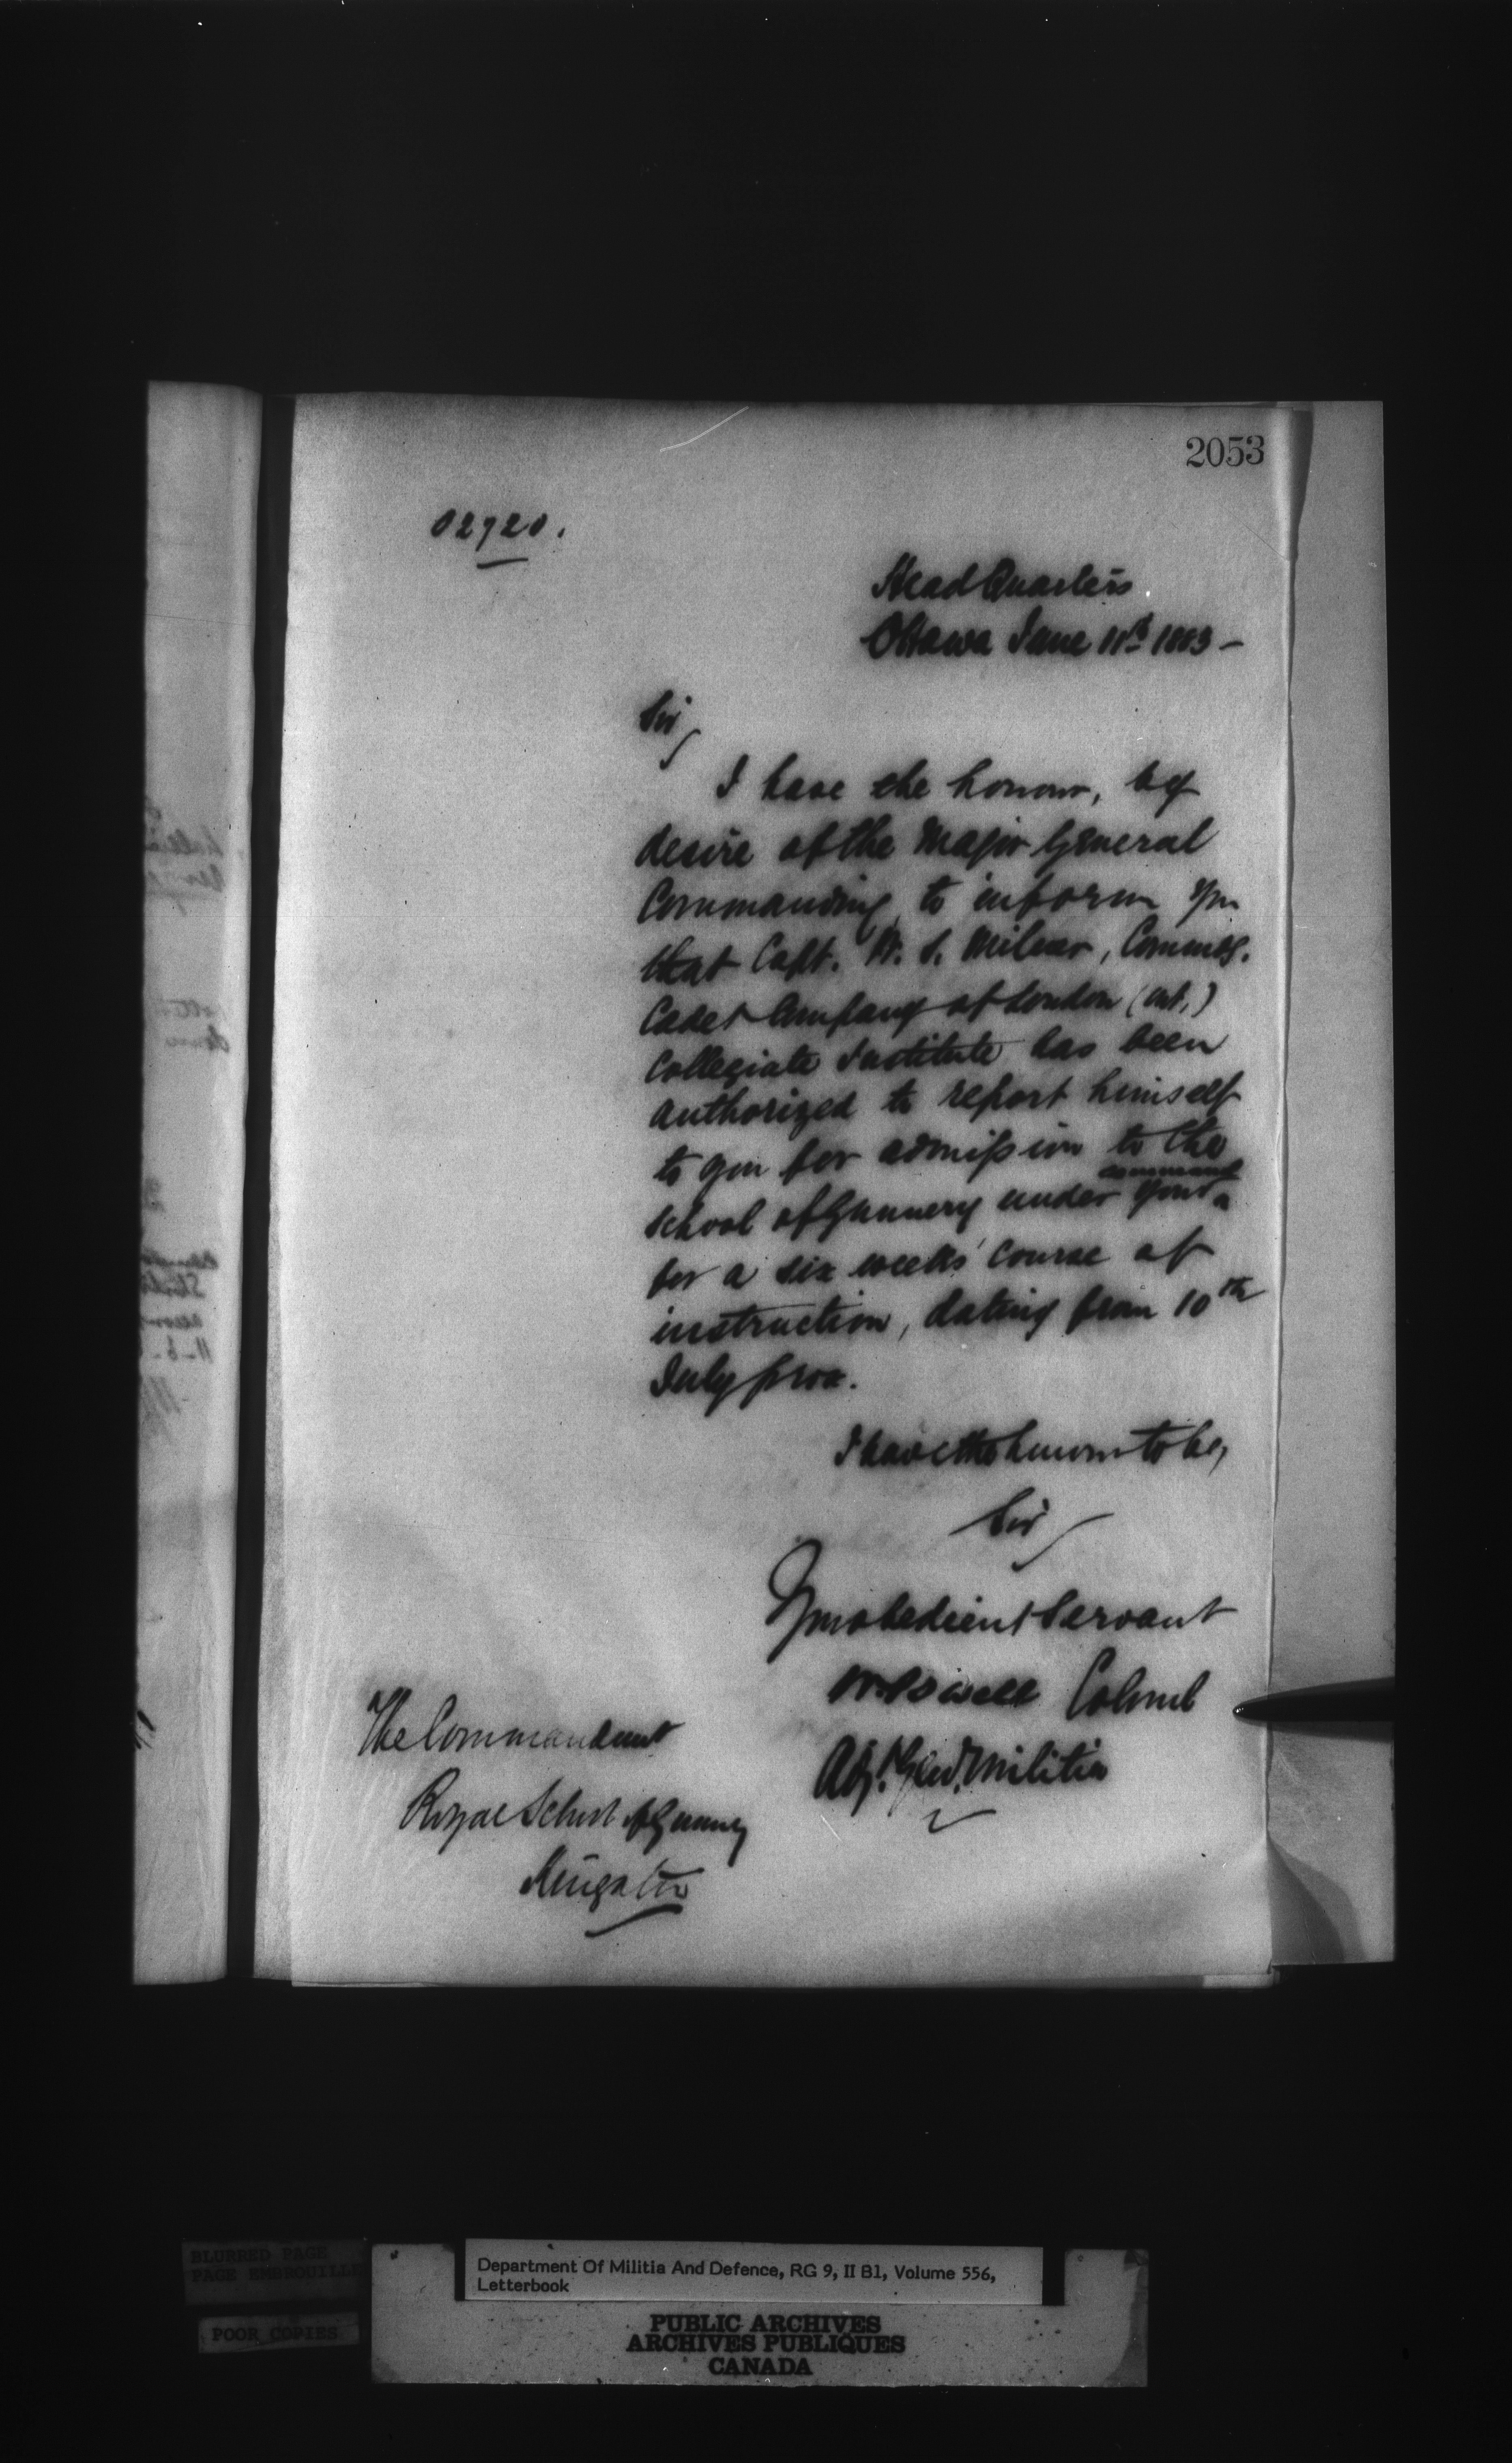 2053
02720.
Head Quarters
Ottawa June 11th 1883 -
Sir,
I have the honour, by
desire of the Major General
Commanding, to inform you
that Capt. W. S. Milner, Commdg.
Cadet Company of London (Ont.)
Collegiate Institute has been
authorized to report himself
to you for admission to the
School of Gunnery under your ^ command
for a six weeks' course of
instruction, dating from 10th
July prox.
I have the honour to be,
Sir,
Your obedient Servant
W. Powell Colonel
Adjt. Genl. Militia
The Commandant
Royal School of Gunnery
Kingston
BLURRED PAGE
PAGE EMBROUILLE
POOR COPIES
Department Of Militia And Defence, RG 9, II B1, Volume 556,
Letterbook
PUBLIC ARCHIVES
ARCHIVES PUBLIQUES
CANADA